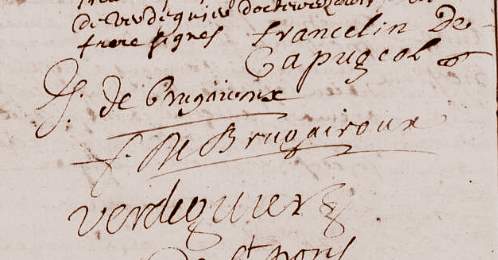 De verdeguier docteur
frere signes francelin De
Capugeol
J. de Brugairoux
f. De Brugairoux
verdiguier
De St pons